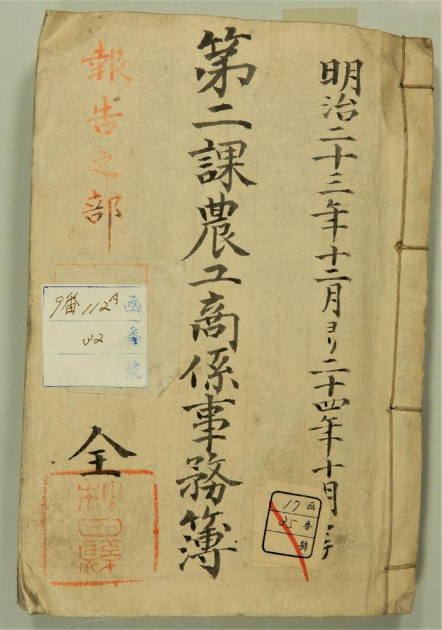 明治二十三年十二月ヨリ二十四年十月
第二課農工商係事務簿
報告之部
全
函番號
9番 112A
02
秋田縣
函番號
17
25